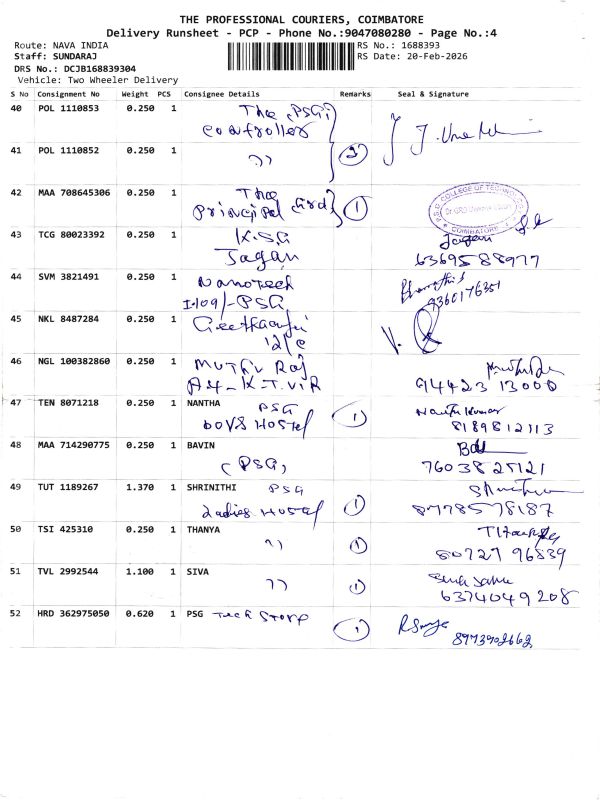 THE PROFESSIONAL COURIERS, COIMBATORE
Delivery Runsheet - PCP - Phone No.:9047080280 - Page No.:4
Route: NAVA INDIA
RS No.: 1688393
Staff: SUNDARAJ
RS Date: 20-Feb-2026
DRS No.: DCJB168839304
Vehicle: Two Wheeler Delivery
S No Consignment No Weight PCS Consignee Details Remarks Seal & Signature
40 POL 1110853 0.250 1 The (PSG)
controller
41 POL 1110852 0.250 1 ,, 2
42 MAA 708645306 0.250 1 The
Principal 1
PSG COLLEGE OF TECHNOLOGY
COIMBATORE
43 TCG 80023392 0.250 1 K.S.G Jagan
Jagan 6369588977
44 SVM 3821491 0.250 1 Nanotech
I-109/-PSG 9360176351
45 NKL 8487284 0.250 1
46 NGL 100382860 0.250 1 Muthu Raj
A4-K.T.V.R 94423 13000
47 TEN 8071218 0.250 1 NANTHA PSG 1
BOYS Hostel 8189812113
48 MAA 714290775 0.250 1 BAVIN
(PSG) 7603825121
49 TUT 1189267 1.370 1 SHRINITHI PSG
Ladies Hostel 1 8778578187
50 TSI 425310 0.250 1 THANYA
,, 1 80727 96839
51 TVL 2992544 1.100 1 SIVA
,, 1 6374049208
52 HRD 362975050 0.620 1 PSG Tech Store 1
8973902662